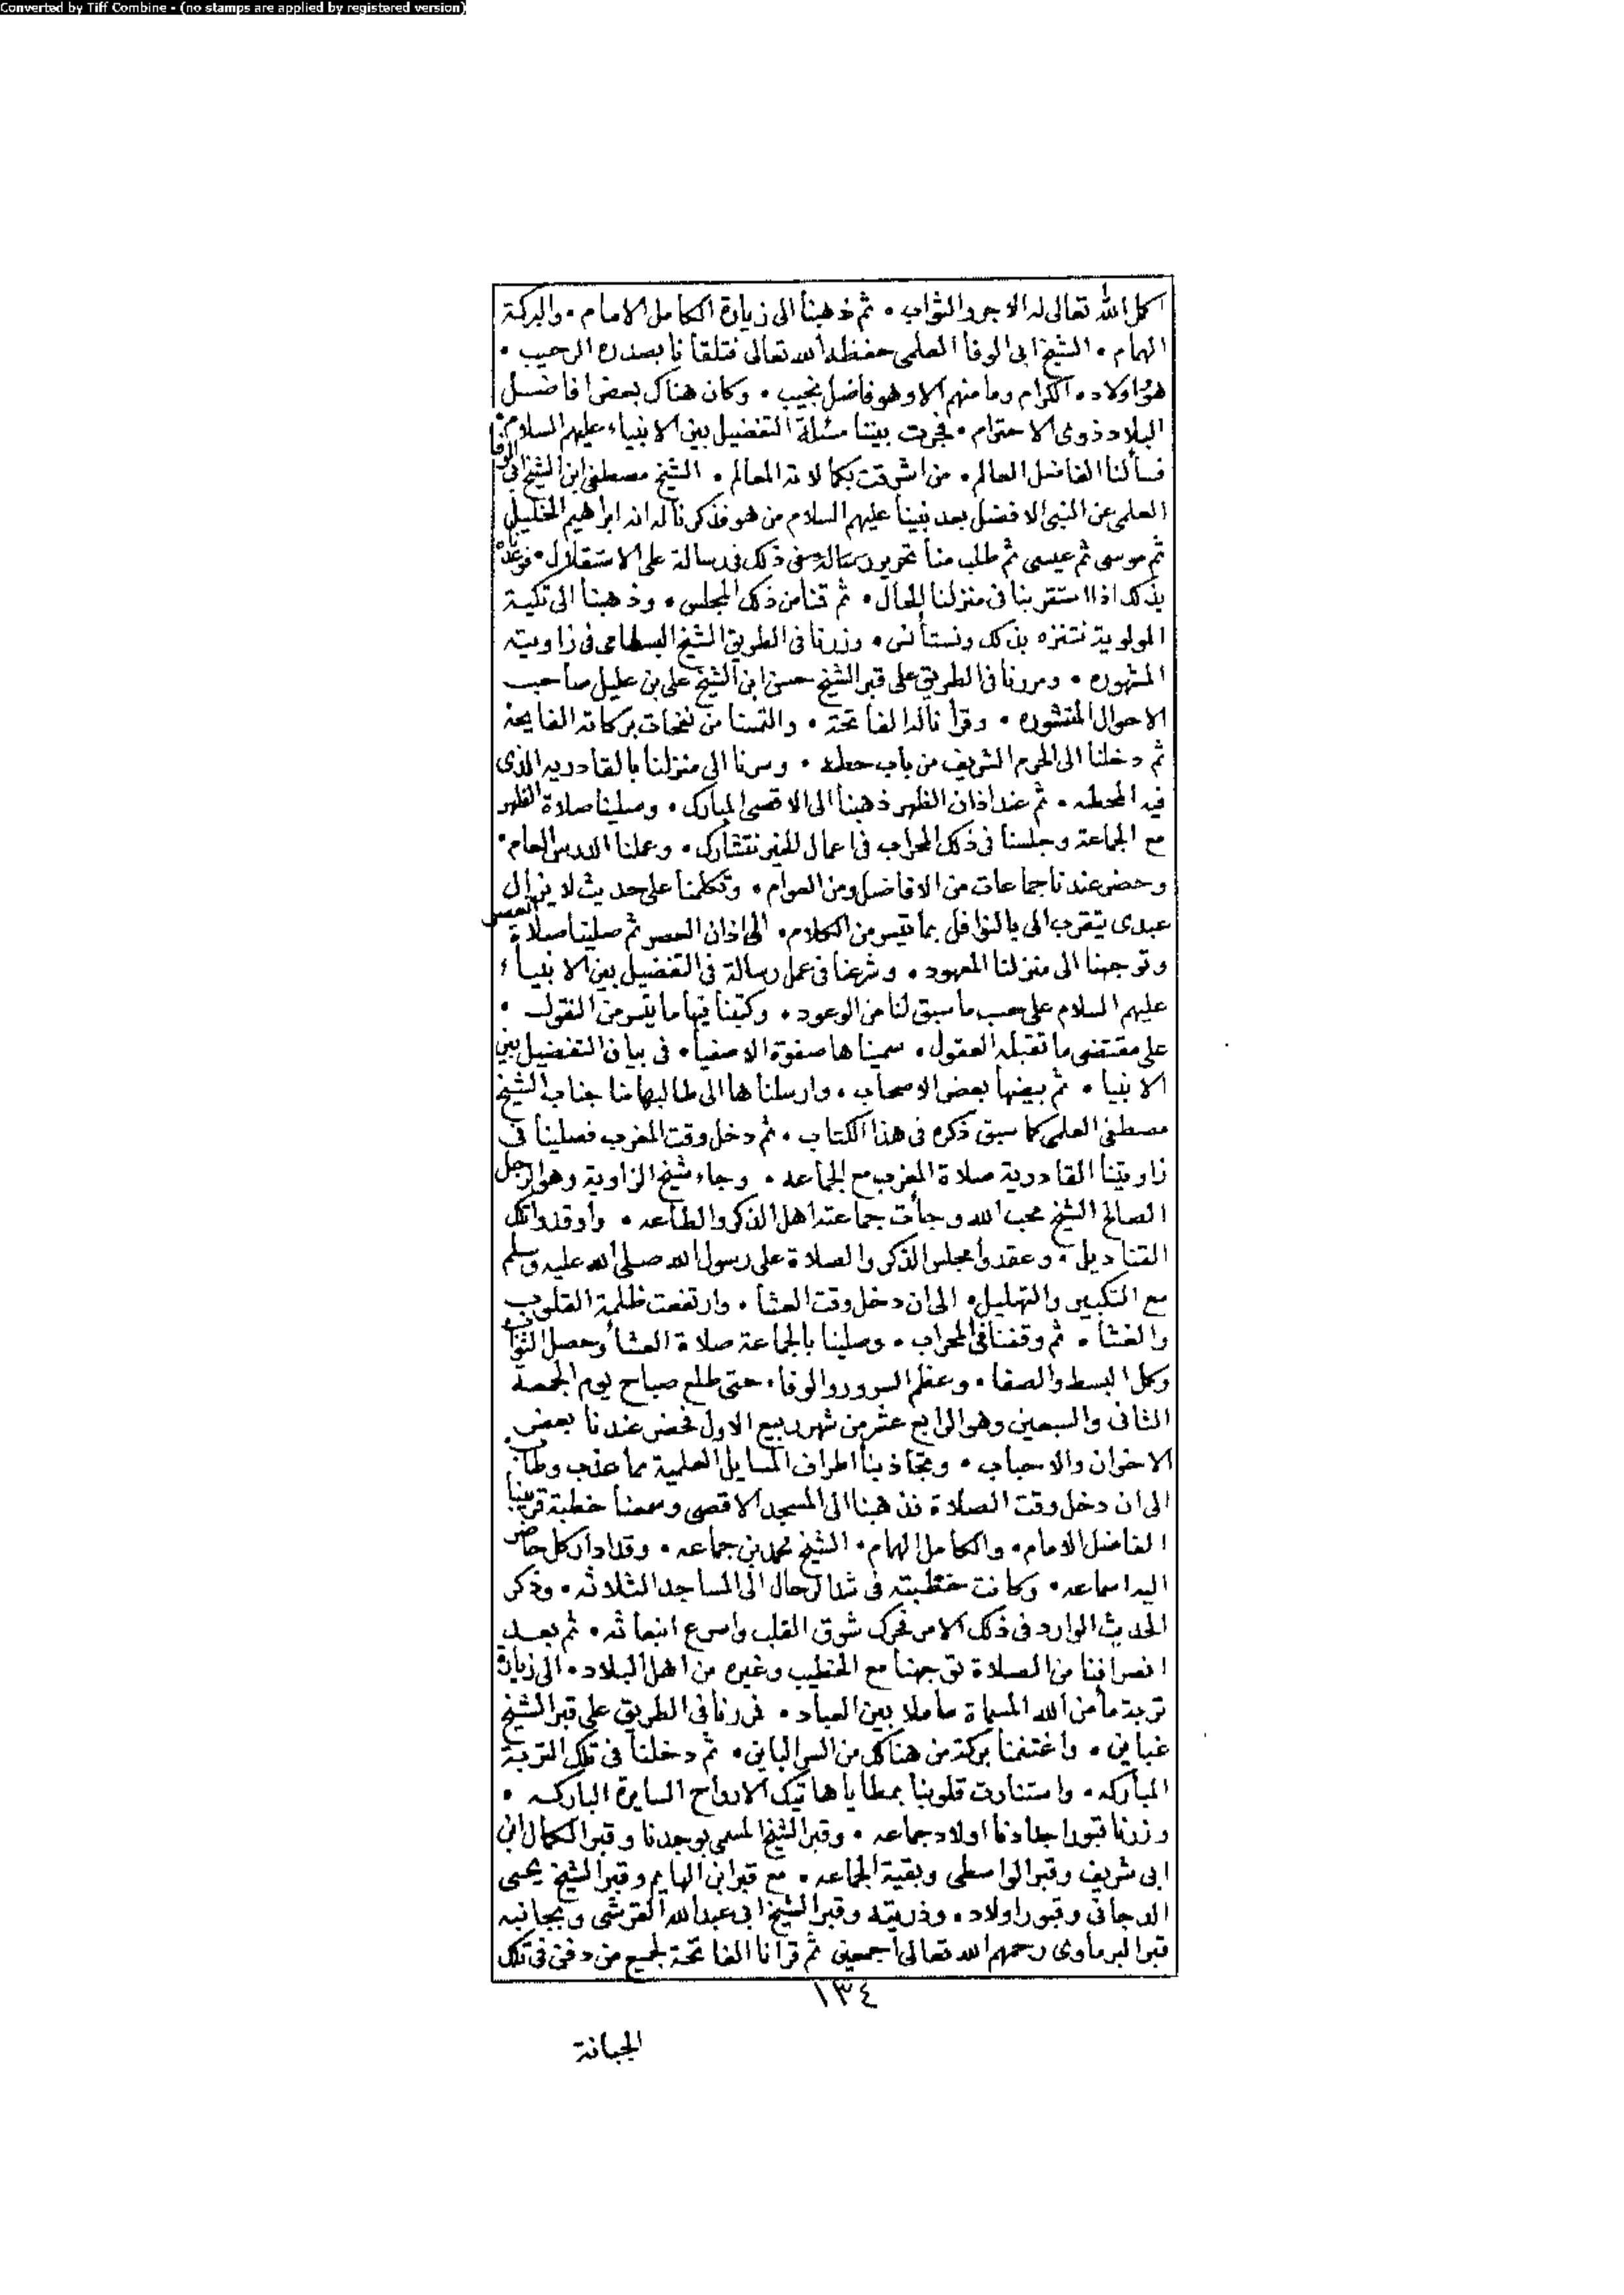 Converted by Tiff Combine - (no stamps are applied by registered version)
اكمل الله تعالى له الاجر والثواب • ثم ذهبنا الى زيارة الكامل الامام • والبركة
الهمام • الشيخ ابى الوفا العلمى حفظه الله تعالى فتلقانا بصدره الرحيب •
هو واولاده الكرام وما منهم الا وهو فاضل نجيب • وكان هناك بعض افاضل
البلاد ذوى الاحترام • فجرت بيننا مسئلة التفضيل بين الانبياء عليهم السلام •
فسألنا الفاضل العالم • من اشرقت بكمالاته المعالم • الشيخ مصطفى ابن الشيخ ابى الوفا
العلمى عن النبى الافضل بعد نبينا عليهم السلام من هو فذكرنا له انه ابراهيم الخليل
ثم موسى ثم عيسى ثم طلب منا تحرير رسالة فى ذلك فى رسالة على الاستقلال • فوعدناه
بذلك اذا استقر بنا فى منزلنا الحال • ثم قمنا من ذلك المجلس • وذهبنا الى تكية
المولوية نتنزه بذلك ونستأنس • وزرنا فى الطريق الشيخ البسطامى فى زاويته
المشهوره • ومررنا فى الطريق على قبر الشيخ حسن ابن الشيخ على بن عليل صاحب
الاحوال المنشوره • وقرأنا له الفاتحة • والتمسنا من نفحات بركاته الفايحة
ثم دخلنا الى الحرم الشريف من باب حطه • وسرنا الى منزلنا بالقادريه الذى
فيه المحطه • ثم عند اذان الظهر ذهبنا الى الاقصى المبارك • وصلينا صلاة الظهر
مع الجماعة وجلسنا فى ذلك المحراب فى اعمال الخير نتشارك • وعملنا الدرس العام •
وحضر عندنا جماعات من الافاضل ومن العوام • وتكلمنا على حديث لا يزال
عبدى يتقرب الى بالنوافل بما تيسر من الكلام • الى اذان العصر ثم صلينا صلاة العصر
وتوجهنا الى منزلنا المعهود • وشرعنا فى عمل رسالة فى التفضيل بين الانبياء
عليهم السلام على حسب ما سبق لنا من الوعود • وكتبنا فيها ما تيسر من النقول •
على مقتضى ما تقبله العقول • سميناها صفوة الاصفيا • فى بيان التفضيل بين
الانبيا • ثم بيضها بعض الاصحاب • وارسلناها الى طالبها منا جناب الشيخ
مصطفى العلمى كما سبق ذكره فى هذا الكتاب • ثم دخل وقت المغرب فصلينا فى
زاويتنا القادرية صلاة المغرب مع الجماعه • وجاء شيخ الزاوية وهو الرجل
الصالح الشيخ محب الله وجأت جماعته اهل الذكر والطاعه • واوقدوا تلك
القناديل • وعقدوا مجلس الذكر والصلاة على رسول الله صلى الله عليه وسلم
مع التكبير والتهليل • الى ان دخل وقت العشا • وارتفعت ظلمة القلوب
والغشا • ثم وقفنا فى المحراب • وصلينا بالجماعة صلاة العشا وحصل الثواب
وكمل البسط والصفا • وعظم السرور والوفا • حتى طلع صباح يوم الجمعة
الثانى والسبعين وهو الرابع عشر من شهر ربيع الاول فحضر عندنا بعض
الاخوان والاحباب • وتجاذبنا اطراف المسايل العلمية مما عذب وطاب •
الى ان دخل وقت الصلاة فذهبنا الى المسجد الاقصى وسمعنا خطبة قريبنا
الفاضل الامام • والكامل الهمام • الشيخ محمد بن جماعه • وقد ادار كل حاضر
اليه اسماعه • وكانت خطبته فى شد الرحال الى المساجد الثلاثه • وذكر
الحديث الوارد فى ذلك الامر فحرك شوق القلب واسرع انبعاثه • ثم بعد
انصرافنا من الصلاة توجهنا مع الخطيب وغيره من اهل البلاد • الى زيارة
تربة مأمن الله المسماة ماملا بين العباد • فمررنا فى الطريق على قبر الشيخ
غباين • واغتنمنا بركة من هنالك من السر الباين • ثم دخلنا فى تلك التربة
المباركه • واستنارت قلوبنا بمطايا هاتيك الارواح السايرة الباركه •
وزرنا قبور اجدادنا اولاد جماعه • وقبر الشيخ المسمى بوجدنا وقبر الكمال ابن
ابى شريف وقبر الواسطى وبقية الجماعه • مع قبر ابن الهايم وقبر الشيخ يحيى
الدجانى وقبور اولاده وذريته وقبر الشيخ ابى عبد الله القرشى وبجانبه
قبر البرماوى رحمهم الله تعالى اجمعين ثم قرأنا الفاتحة لجميع من دفن فى تلك
١٣٤
الجبانة